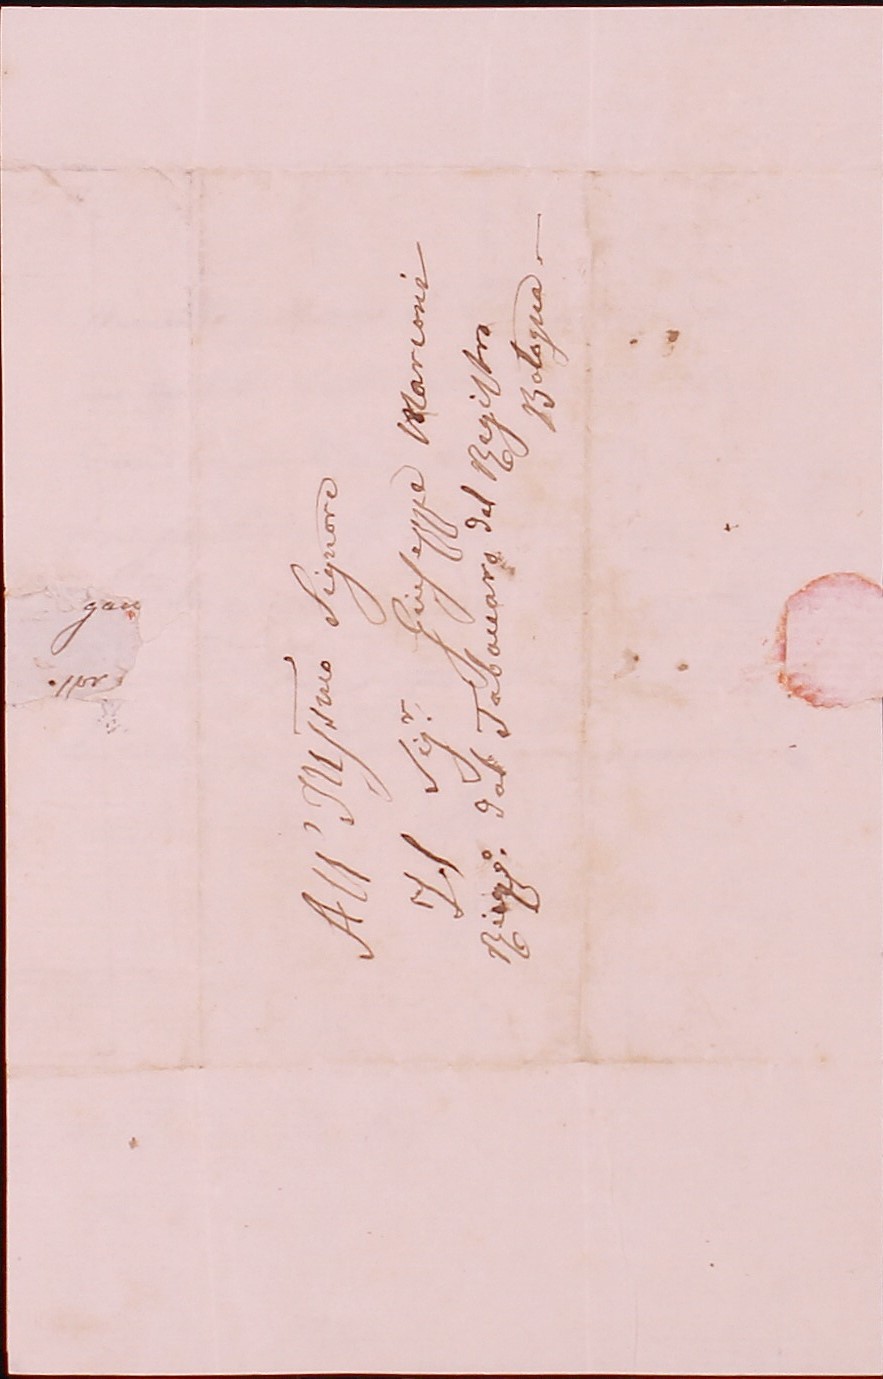 All' Ill.mo Signore
Il Sig.r Giuseppe Marconi
dal Tabaccaro del Registro
Bologna.
gan